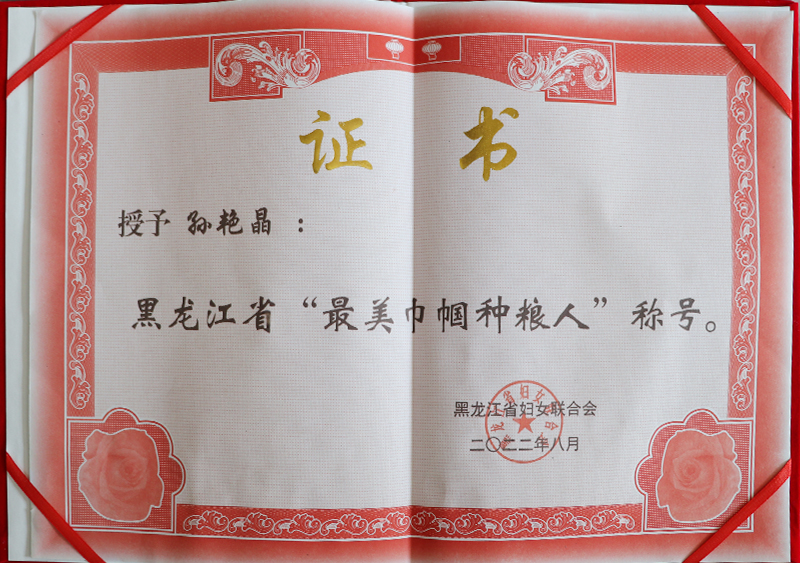 证 书
授予 孙艳晶 :
黑龙江省“最美巾帼种粮人”称号。
黑龙江省妇女联合会
二〇二二年八月